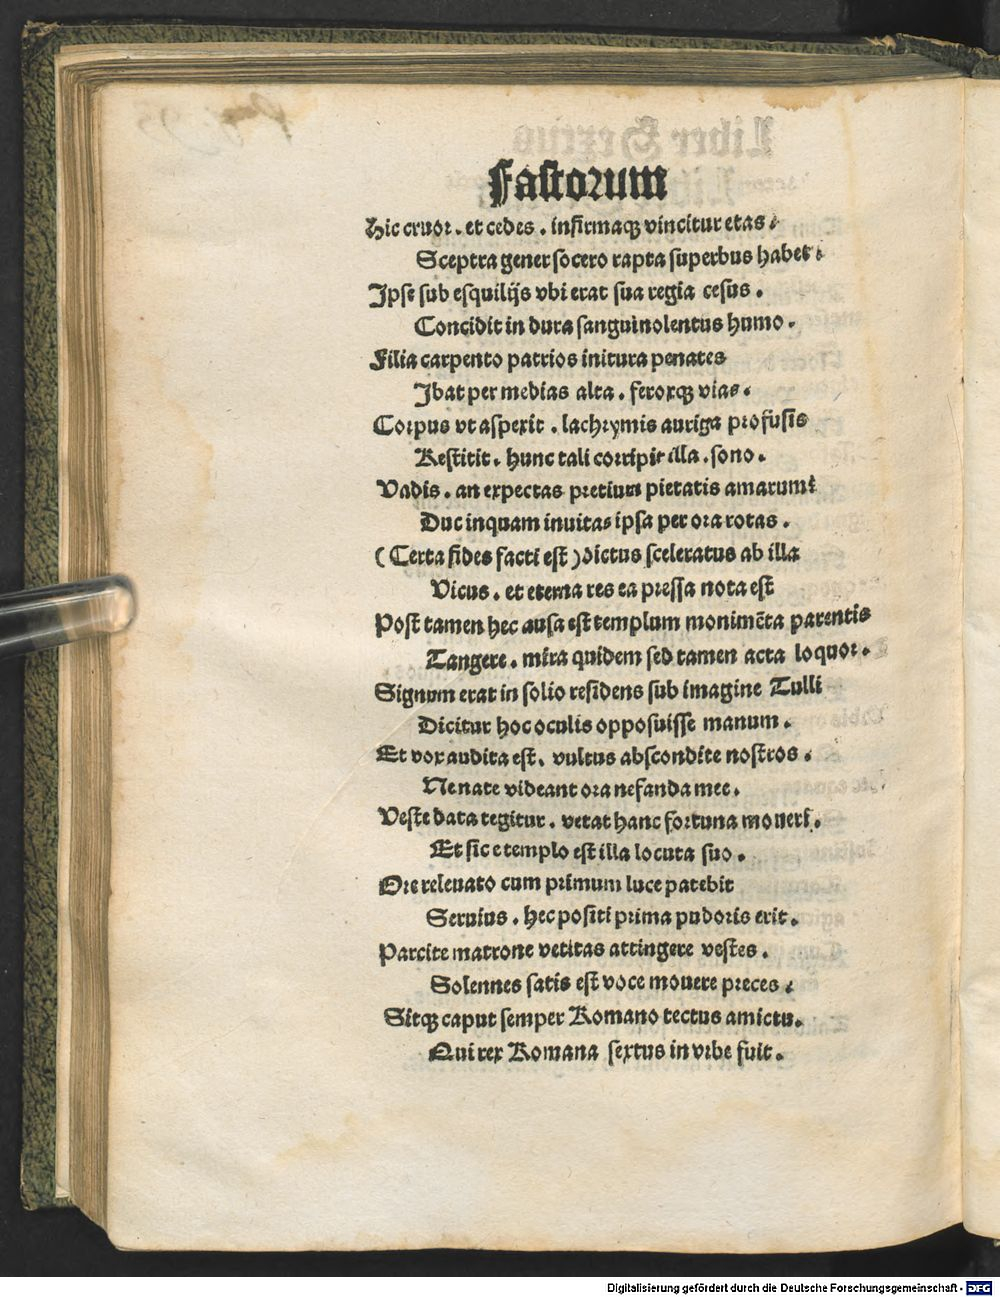 Fastorum
Hic cruor. et cedes. infirmaqꝫ vincitur etas:
Sceptra gener socero rapta superbus habet:
Ipse sub esquilijs vbi erat sua regia cesus.
Concidit in dura sanguinolentus humo.
Filia carpento patrios initura penates
Ibat per medias alta. feroxqꝫ vias.
Corpus vt aspexit. lachrymis auriga profusis
Restitit. hunc tali corripit illa. sono.
Vadis. an expectas pretium pietatis amarum?
Duc inquam inuitas ipsa per ora rotas.
(Certa fides facti est) dictus sceleratus ab illa
Vicus. et eterna res ea pressa nota est
Post tamen hec ausa est templum monimēta parentis
Tangere. mira quidem sed tamen acta loquor.
Signum erat in solio residens sub imagine Tulli
Dicitur hoc oculis opposuisse manum.
Et vox audita est. vultus abscondite nostros.
Ne nate videant ora nefanda mee.
Veste data tegitur. vetat hanc fortuna moueri.
Et sic e templo est illa locuta suo.
Ore releuato cum primum luce patebit
Seruius. hec positi prima pudoris erit.
Parcite matrone vetitas attingere vestes.
Solennes satis est voce mouere preces:
Sitqꝫ caput semper Romano tectus amictu.
Qui rex Romana sextus in vrbe fuit.
Digitalisierung gefördert durch die Deutsche Forschungsgemeinschaft - DFG